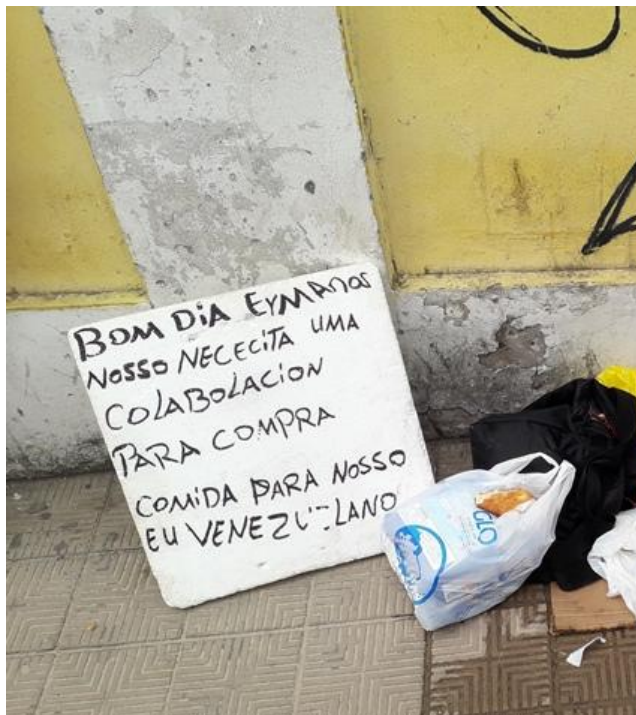 BOM DIA EYMANOS
NOSSO NECECITA UMA
COLABOLACION
PARA COMPRA
COMIDA PARA NOSSO
EU
GLO